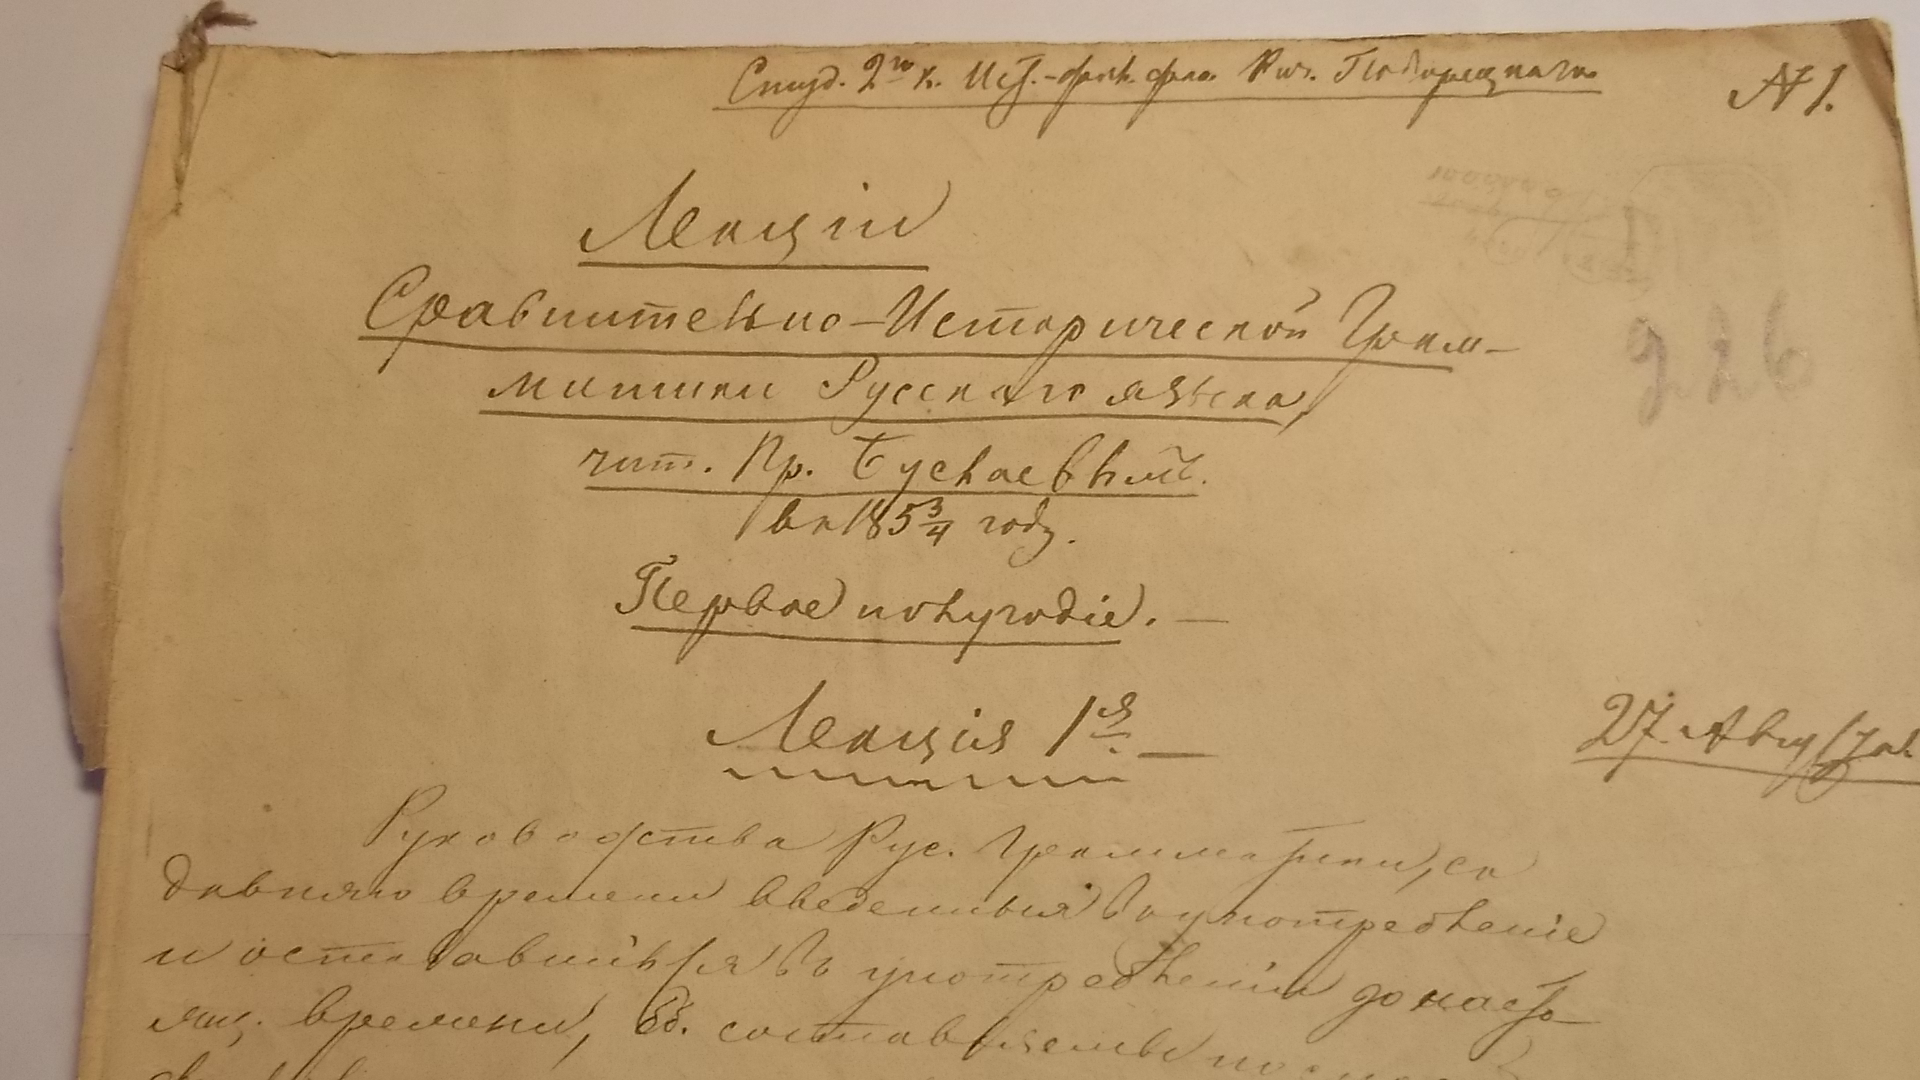 Студ. 2го к. Ист.-фил. фак.
№ 1.
Лекціи
Сравнительно-Исторической Грам-
матики Русскаго языка,
чит. Пр. Буслаевымъ.
въ 185¾ году.
226
Первое полугодіе. —
Лекція 1я —
27. Августа.
Руководства Рус. Грамматики, съ
давняго времени введенныя въ употребленіе
и оставшійся въ употребленіи до насто-
ящ. времени, составлены